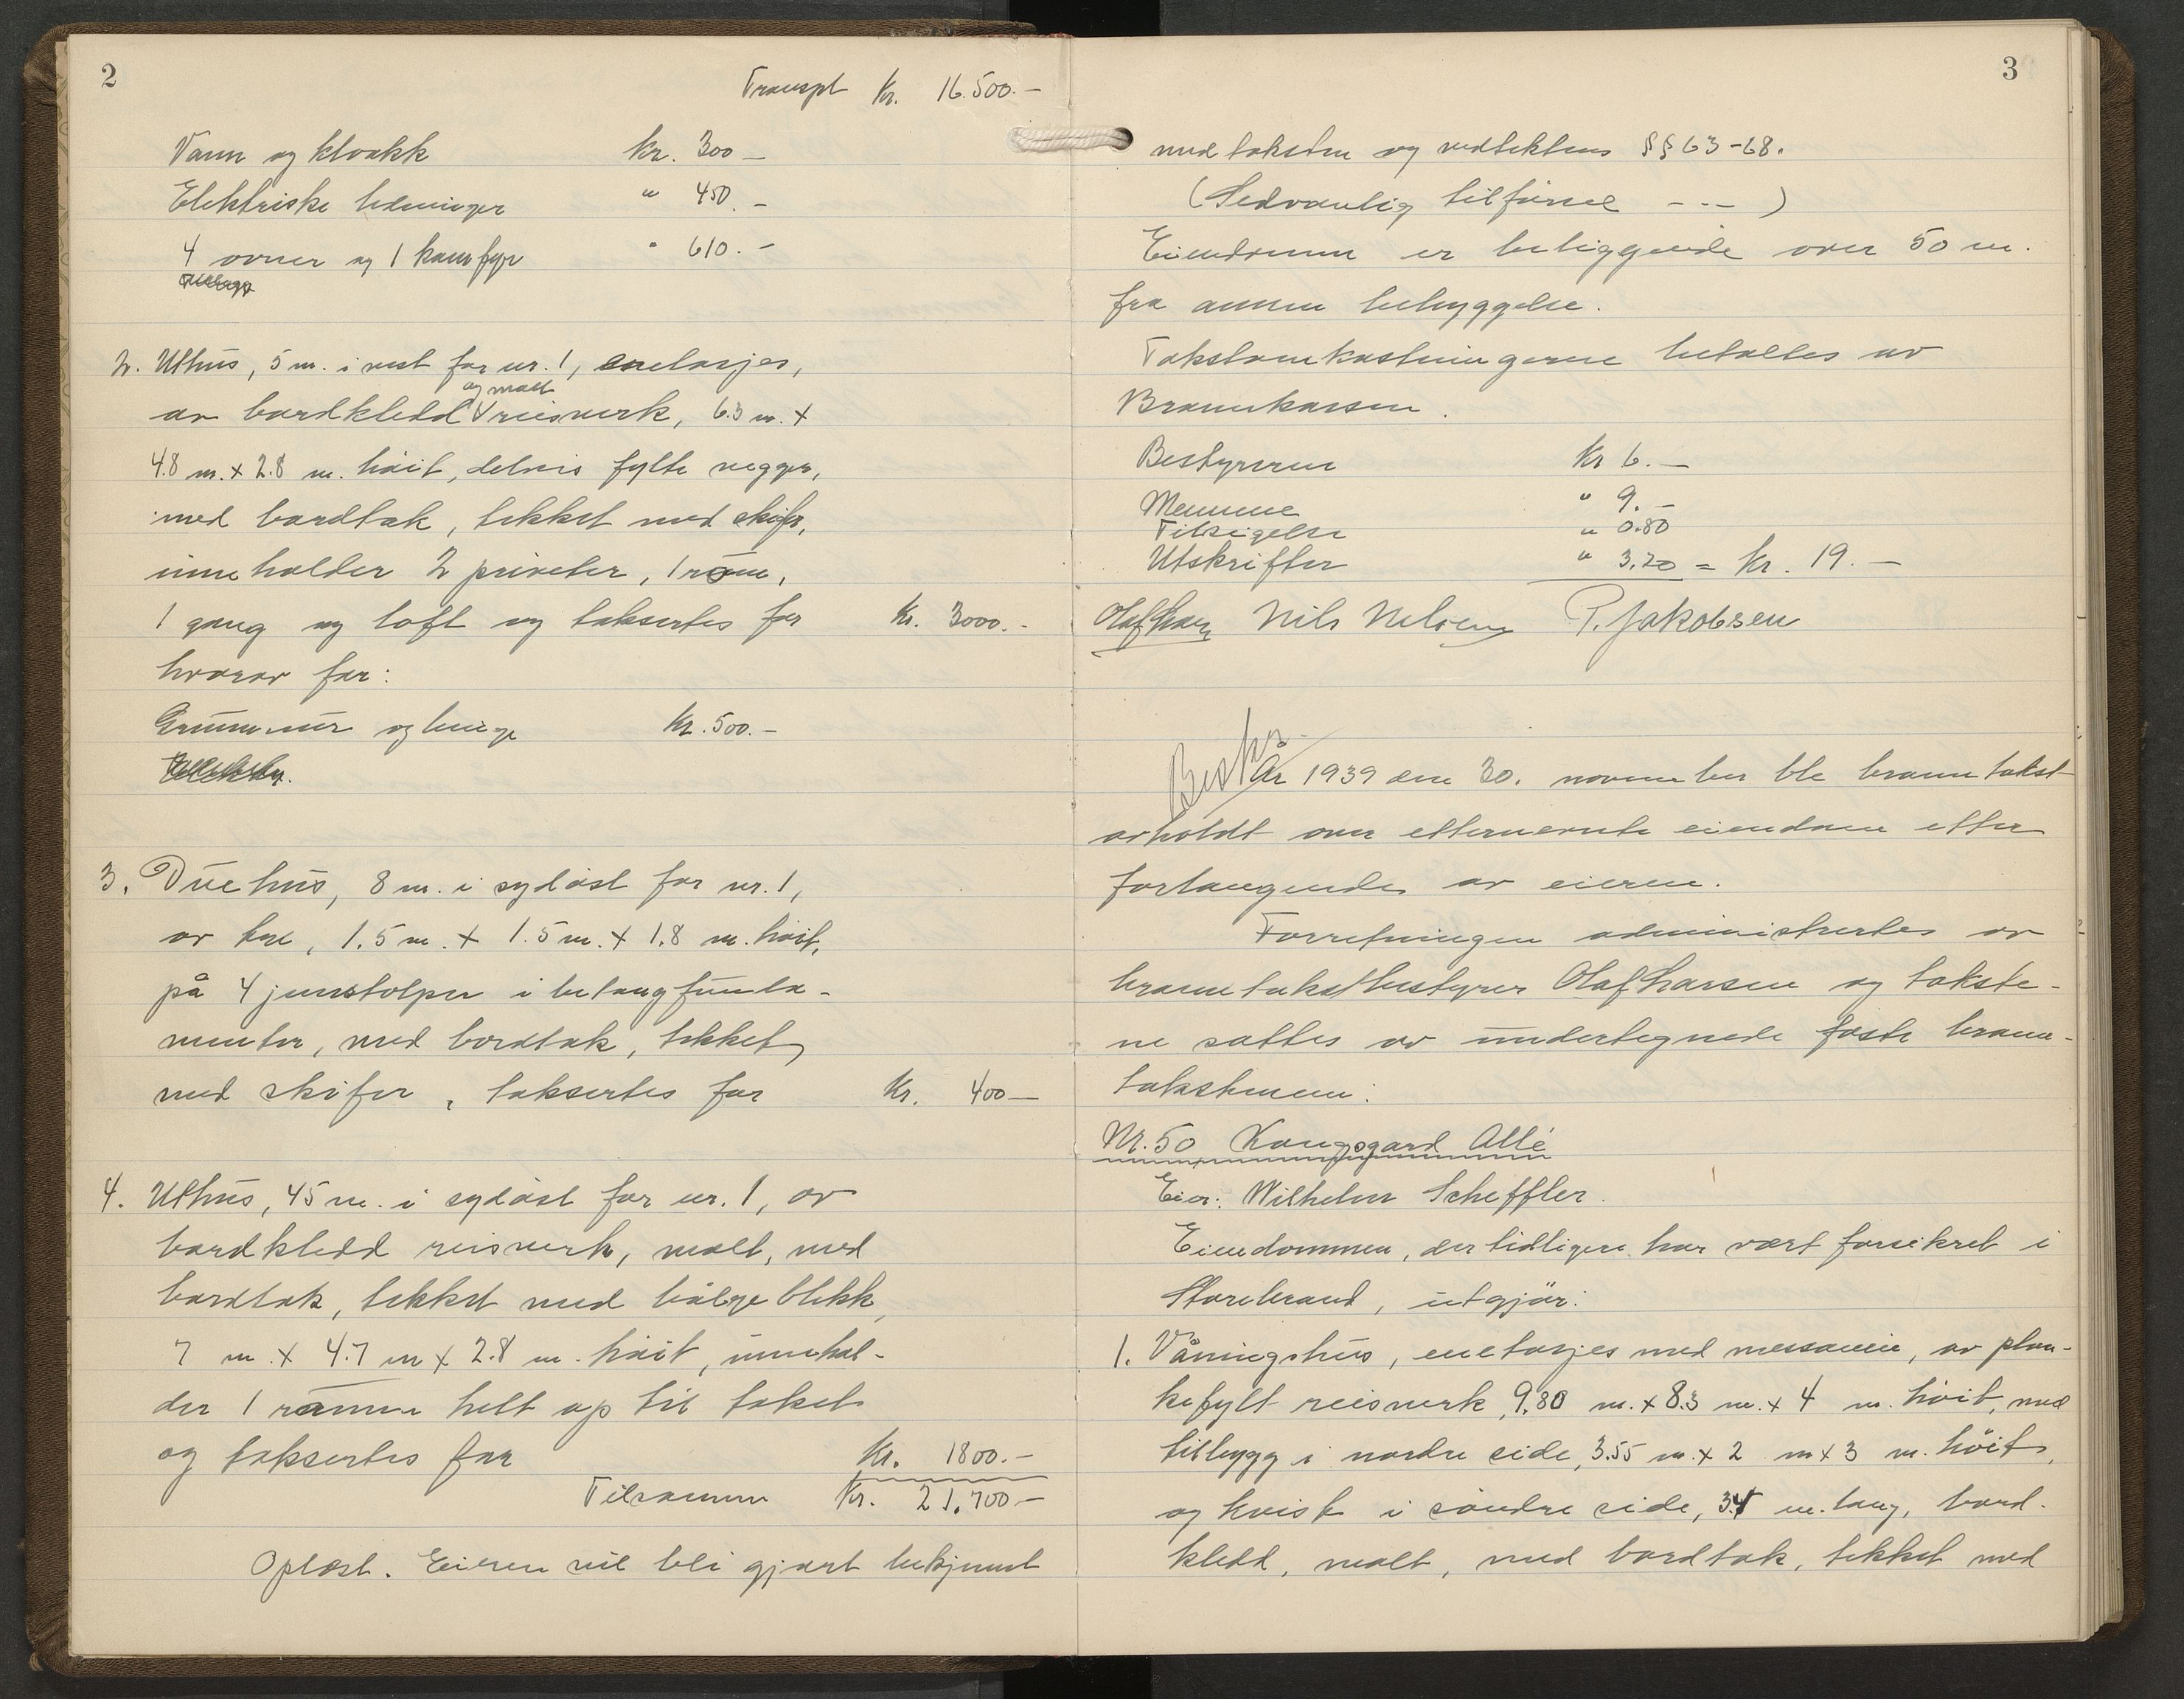 2
Transpt Kr. 16.500.-
Vann og kloakk kr. 300 -
Elektriske ledninger " 450. -
4 ovner og 1 komfyr " 610. -
2. Uthus, 5 m. i vest for nr. 1, enetasjes,
av bordkledd og malt reisverk, 6.3 m. x
4.8 m. x 2.8 m. høit, delvis fylte vegger,
med bordtak, tekket med skifr,
inneholder 2 priveter, 1 rom,
1 gang og loft og taksertes for Kr. 3000.-
hvorav for:
Grunnmur og Kr. 500.-
3. Duehus, 8 m. i sydøst for nr. 1,
av tre, 1.5 m. x 1.5 m. x 1.8 m. høit,
på 4 jernstolper i betongfunda-
menter, med bordtak, tekket
med skifer, taksertes for Kr. 400 -
4. Uthus, 45 m. i sydøst for nr. 1, av
bordkledd reisverk, malt, med
bordtak, tekket med bølgeblikk,
7 m. x 4.7 m x 2.8 m. høit, innehol-
der 1 rumm helt op til taket
og taksertes for Kr. 1800.-
Tilsammen Kr. 21.700 -
Oplest. Eieren vil bli gjort bekjennt
3
med taksten og vedtektens §§ 63-68.
(Sedvanlig tilførsel - - - )
Eiendommen er beliggende over 50 m.
fra annen bebyggelse.
Takstomkostningerne betaltes av
Brannkassen.
Bestyreren Kr 6. -
Mennene " 9. -
Tilsigelse " 0.80
Utskrifter " 3.20 = Kr. 19. -
Olaf Larsen Nils Nelsen P. Jakobsen
Beskr
År 1939 den 30. november ble branntakst
avholdt over etternevnte eiendom efter
forlangende av eieren.
Forretningen administrertes av
branntakstbestyrer Olaf Larsen og takste-
ne sattes av undertegnede faste brann-
takstmenn:
Nr. 50 Kongsgard Allé
Eier: Wilhelm Scheffler.
Eiendommen, der tidligere har vært forsikret i
Storebrand, utgjør:
1. Våningshus, enetasjes med messanin, av plan-
kefylt reisverk, 9.80 m. x 8.3 m. x 4 m. høit, med
tilbygg i nordre side, 3.55 m. x 2 m x 3 m. höit,
og kvist i søndre side, 3.4 m. lang, bord-
kledd, malt, med bordtak, tekket med